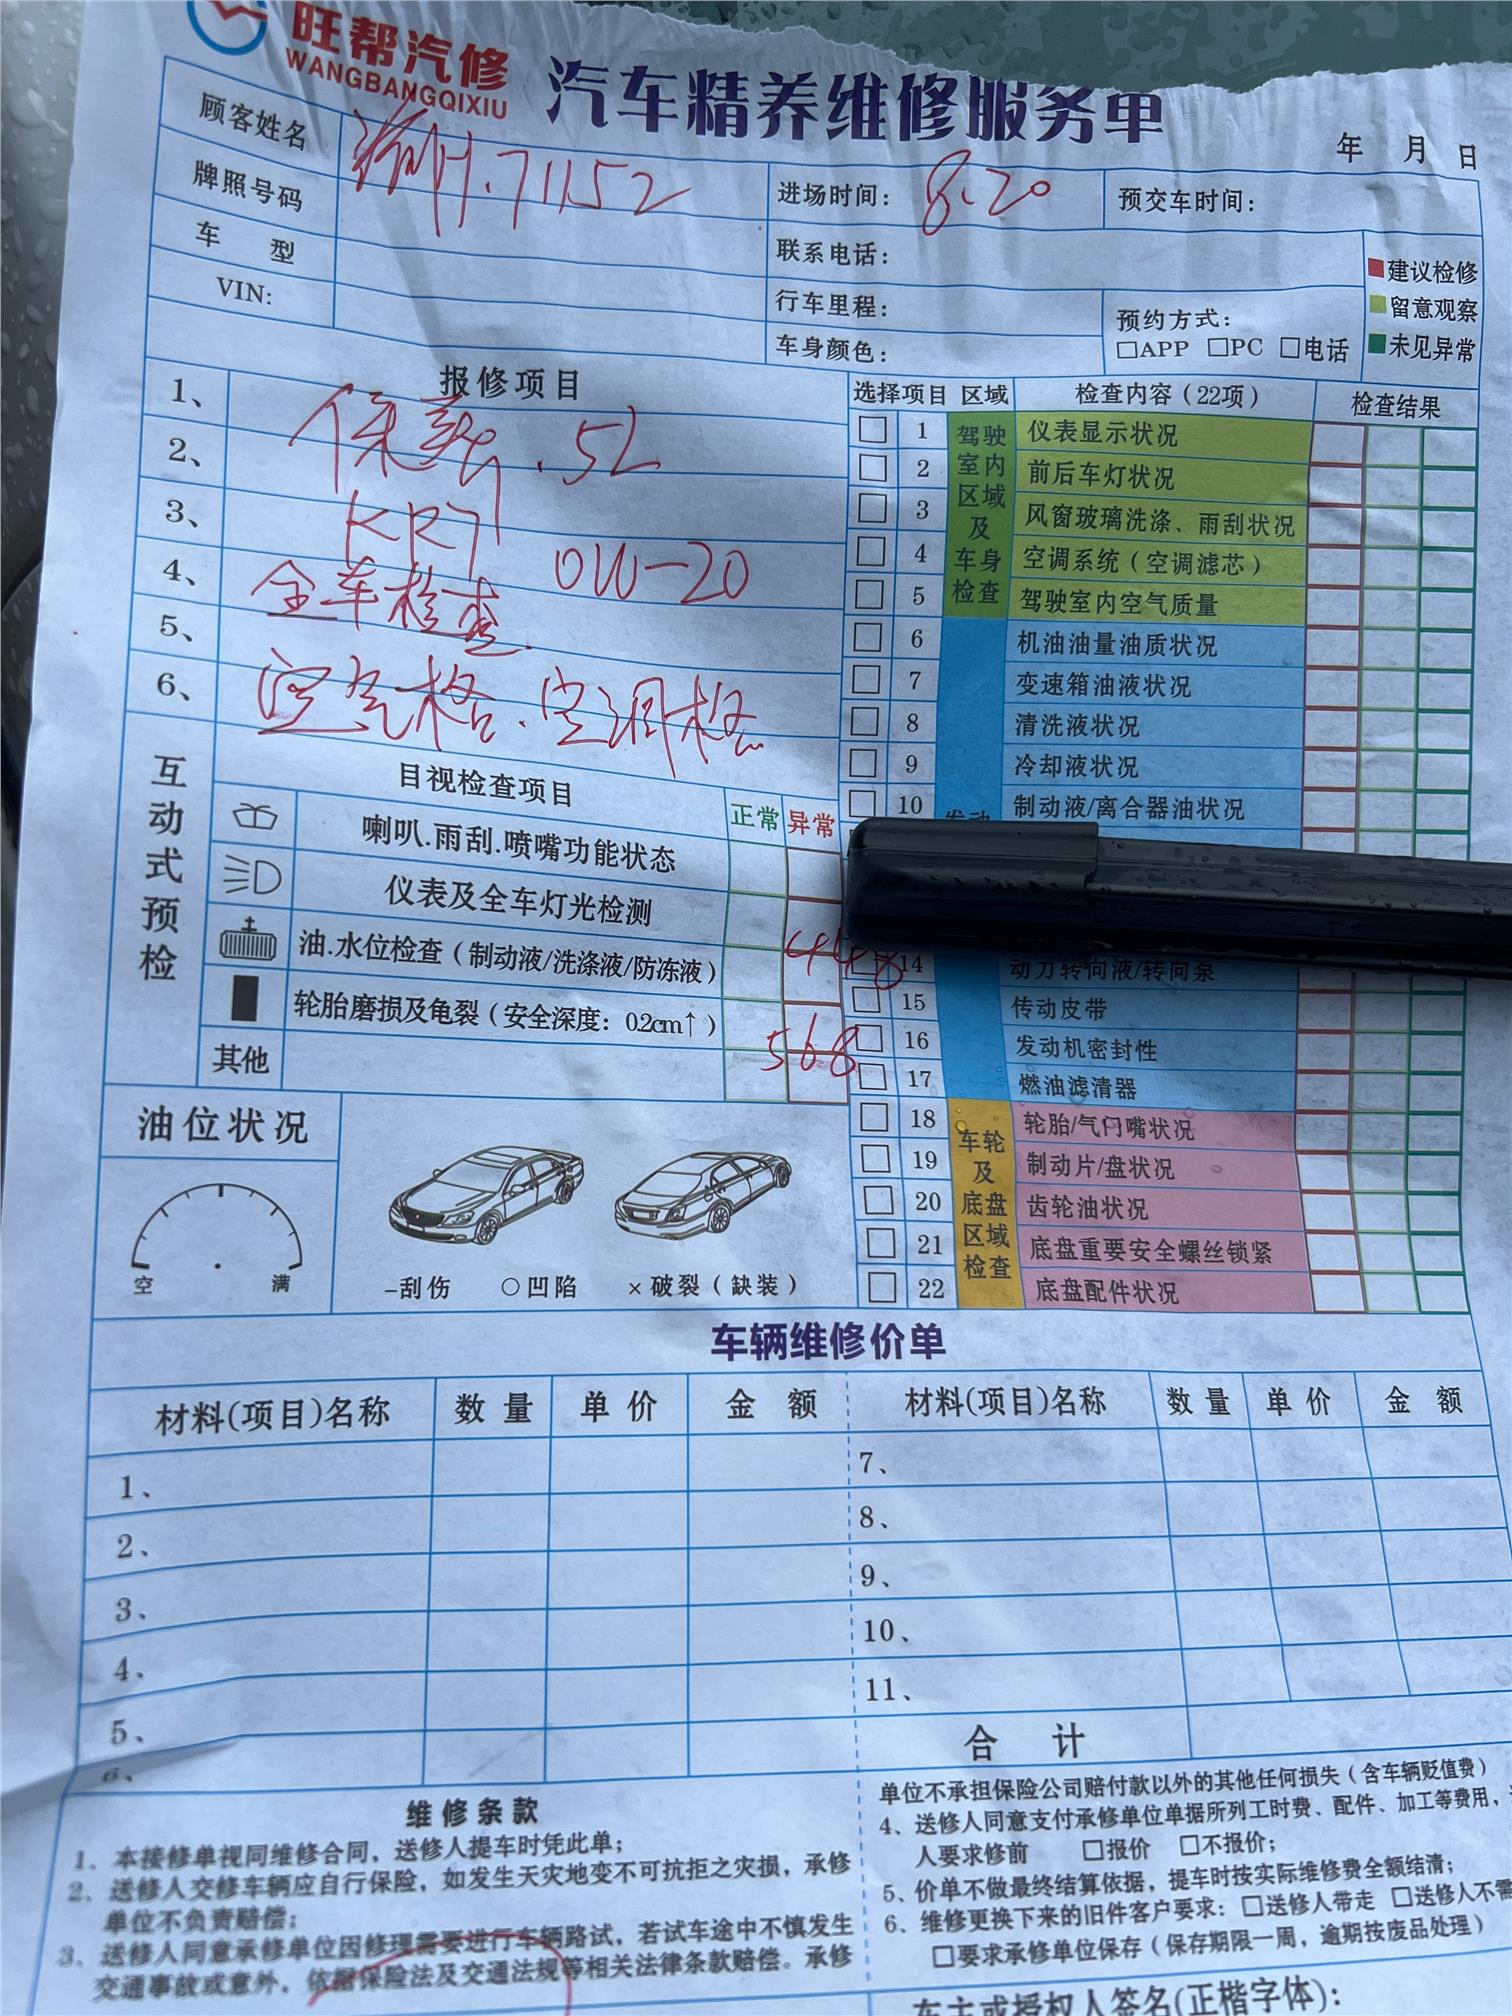 旺帮汽修
WANGBANGQIXIU
汽车精养维修服务单
年 月 日
顾客姓名
71152
进场时间： 8.20
预交车时间：
牌照号码
联系电话：
车 型
行车里程：
预约方式：
□APP □PC □电话
VIN:
车身颜色：
建议检修
留意观察
未见异常
报修项目
1、
保养.5L
2、
3、
KR7 0W-20
4、
全车检查
5、
6、
空气格.空调格
选择项目 区域 检查内容（22项） 检查结果
驾驶室内区域及车身检查
1 仪表显示状况
2 前后车灯状况
3 风窗玻璃洗涤、雨刮状况
4 空调系统（空调滤芯）
5 驾驶室内空气质量
6 机油油量油质状况
7 变速箱油液状况
8 清洗液状况
9 冷却液状况
10 制动液/离合器油状况
发动
14 动力转向液/转向泵
15 传动皮带
16 发动机密封性
17 燃油滤清器
车轮及底盘区域检查
18 轮胎/气门嘴状况
19 制动片/盘状况
20 齿轮油状况
21 底盘重要安全螺丝锁紧
22 底盘配件状况
互动式预检
目视检查项目 正常 异常
喇叭.雨刮.喷嘴功能状态
仪表及全车灯光检测
油.水位检查（制动液/洗涤液/防冻液）
448
轮胎磨损及龟裂（安全深度：0.2cm↑）
568
其他
油位状况
空 满
–刮伤 ○凹陷 ×破裂（缺装）
车辆维修价单
材料(项目)名称 数量 单价 金额 材料(项目)名称 数量 单价 金额
1、 7、
2、 8、
3、 9、
4、 10、
5、 11、
6、 合 计
维修条款
1、本接修单视同维修合同，送修人提车时凭此单；
2、送修人交修车辆应自行保险，如发生天灾地变不可抗拒之灾损，承修
单位不负责赔偿；
3、送修人同意承修单位因修理需要进行车辆路试，若试车途中不慎发生
交通事故或意外，依据保险法及交通法规等相关法律条款赔偿。承修
单位不承担保险公司赔付款以外的其他任何损失（含车辆贬值费）
4、送修人同意支付承修单位单据所列工时费、配件、加工等费用，
人要求修前 □报价 □不报价；
5、价单不做最终结算依据，提车时按实际维修费全额结清；
6、维修更换下来的旧件客户要求：□送修人带走 □送修人不需
□要求承修单位保存（保存期限一周，逾期按废品处理）
车主或授权人签名(正楷字体)：